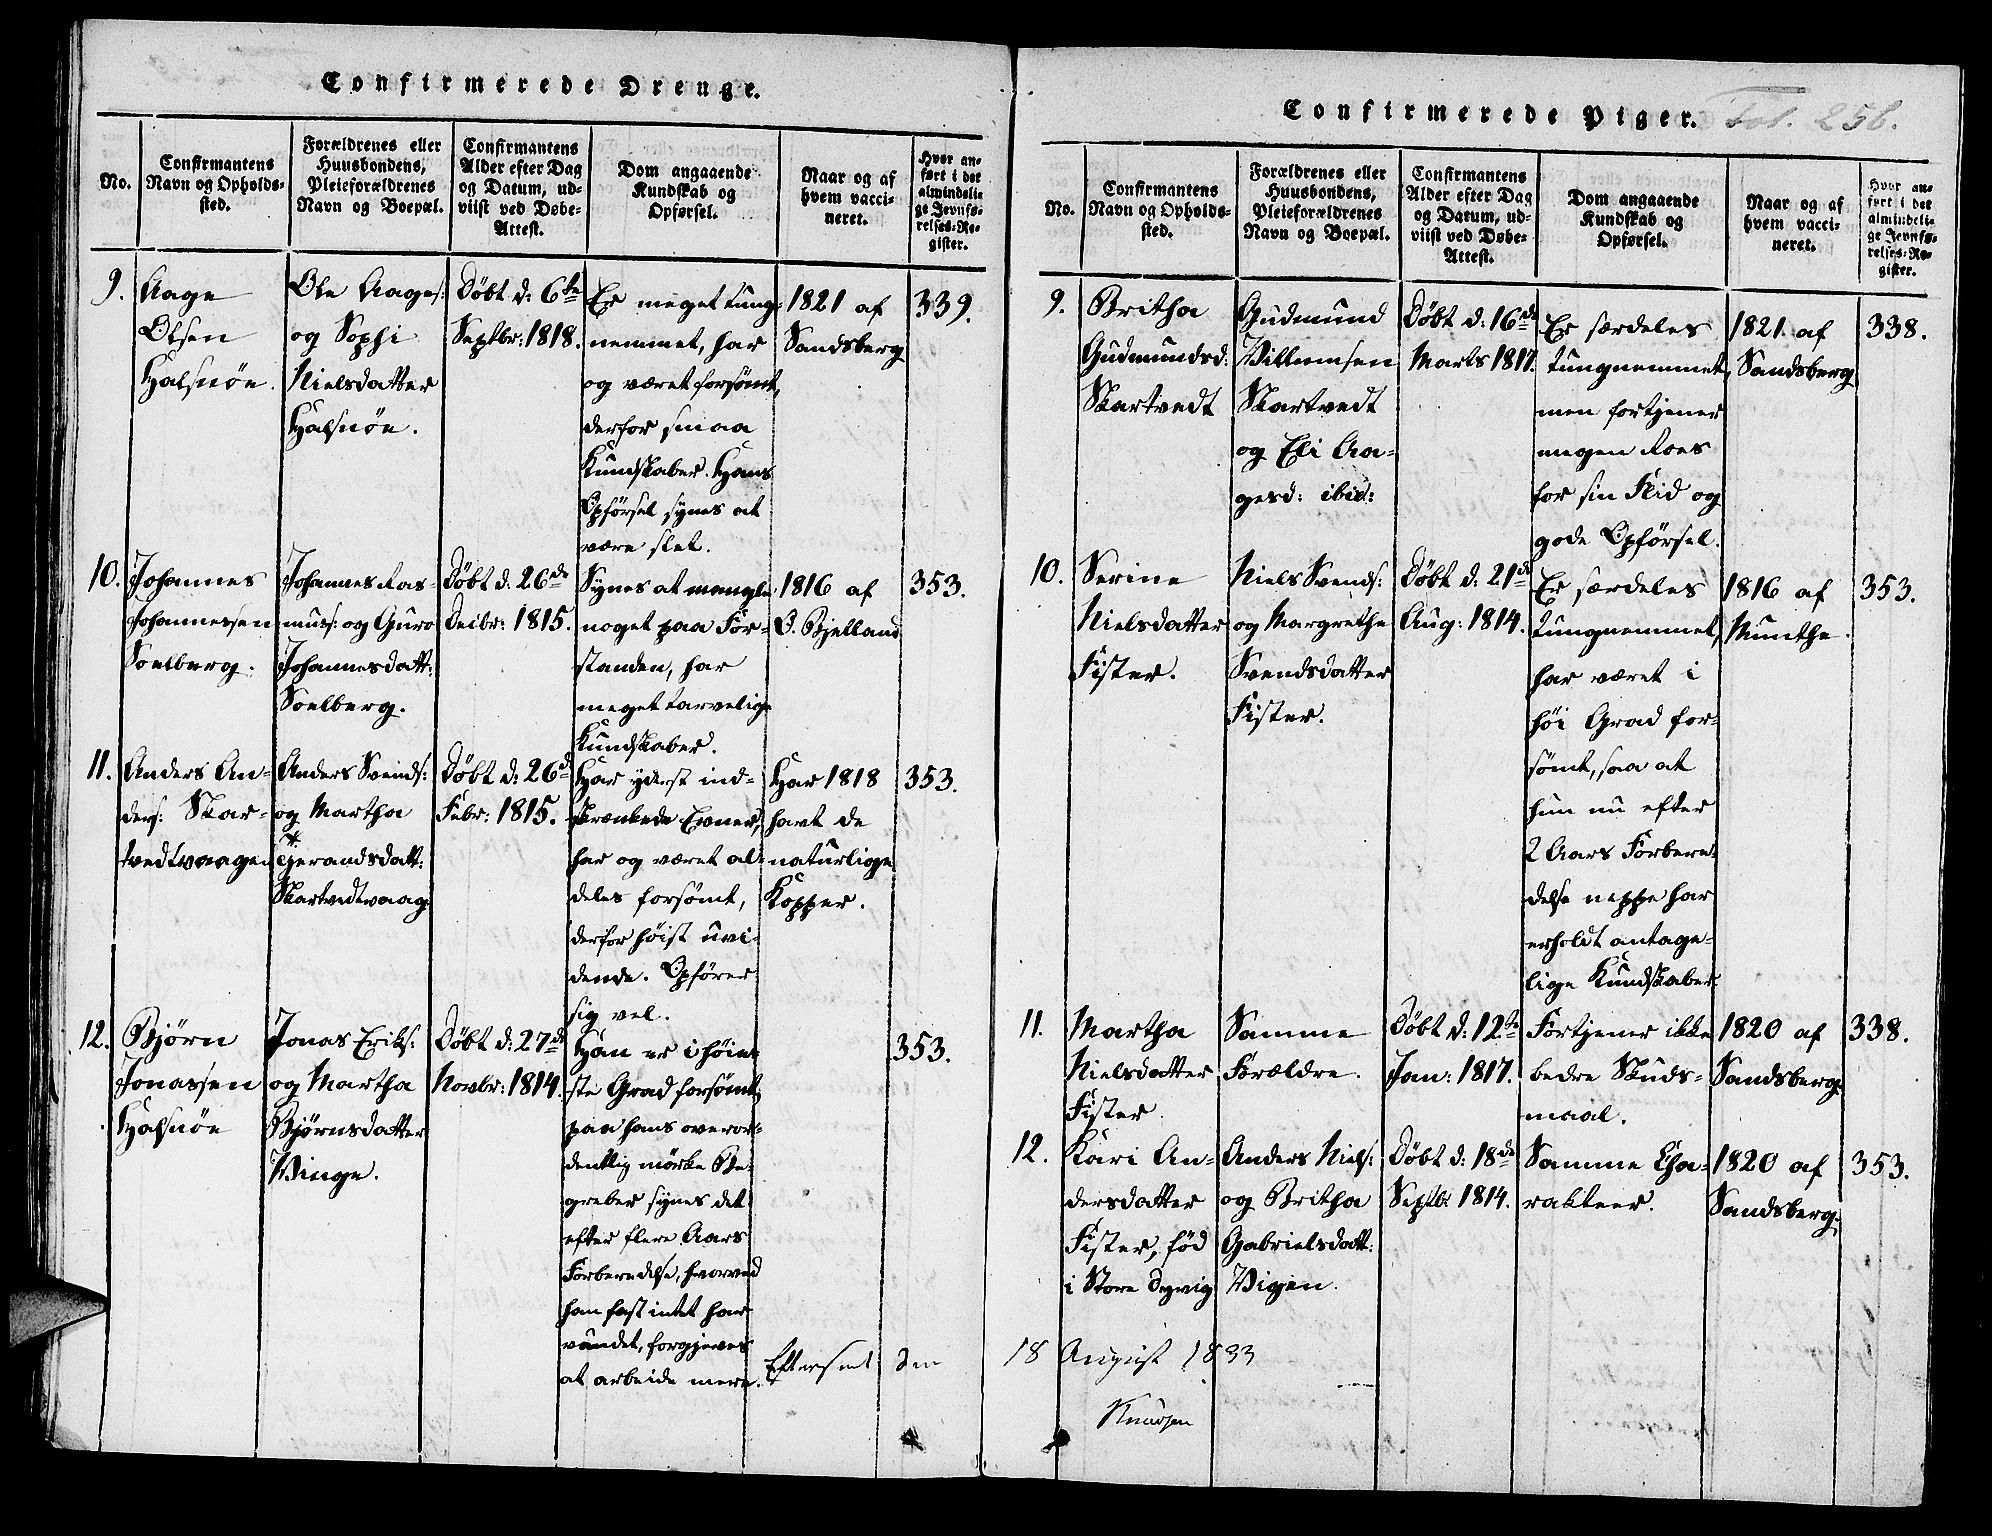 Confirmerede Drenge.
No.
Confirmantens
Navn og Opholds-
sted.
Forældrenes eller
Huusbondens,
Pleieforældrenes
Navn og Boepæl.
Confirmantens
Alder efter Dag
og Datum, ud-
viist ved Døbe-
Attest.
Dom angaaende
Kundskab og
Opførsel.
Naar og af
hvem vacci-
neret.
Hvor an-
ført i det
almindeli-
ge Jevnfø-
relses-Re-
gister.
9.
Aage
Olsen
Halsnøe.
Ole Aages:
og Sophi
Nielsdatter
Halsnøe.
Døbt d: 6te
Septbr: 1818.
Er meget tung-
nemmet, har
og været forsømt,
derfor smaa
Kundskaber. Hans
Opførsel synes at
være slet.
1821 af
Sandsberg
339.
10.
Johannes
Johannessen
Soelberg.
Johannes Ras-
muss: og Guro
Johannesdatt:
Soelberg.
Døbt d: 26de
Decbr: 1815.
Synes at mangle
noget paa For-
standen, har
meget tarvelige
Kundskaber.
1816 af
O. Bjelland
353.
11.
Anders An-
ders: Skar-
tvedtvaagen
Anders Svends:
og Martha
Gjerandsdatt:
Skartvedtvaag
Døbt d: 26d
Febr: 1815.
Har yderst ind-
skrænkede Evner,
har og været al-
deles forsømt,
derfor høist uvi-
dende. Opfører
sig vel.
Har 1818
havt de
naturlige
Kopper.
353.
12.
Bjørn
Jonassen
Halsnøe
Jonas Eriks:
og Martha
Bjørnsdatter
Vinge.
Døbt d: 27de
Novbr: 1814.
Han er i høie-
ste Grad forsømt,
paa hans overor-
dentlig mørke Be-
greber synes det
efter flere Aars
Forberedelse, hvorved
han fast intet har
vundet, forgjeves
at arbeide mere.
353.
Efterseet den
Confirmerede Piger.
Fol. 256.
No.
Confirmantens
Navn og Opholds-
sted.
Forældrenes eller
Huusbondens,
Pleieforældrenes
Navn og Boepæl.
Confirmantens
Alder efter Dag
og Datum, ud-
viist ved Døbe-
Attest.
Dom angaaende
Kundskab og
Opførsel.
Naar og af
hvem vacci-
neret.
Hvor an-
ført i det
almindeli-
ge Jevnfø-
relses-Re-
gister.
9.
Britha
Gudmundsd:
Skartvedt
Gudmund
Villumsen
Skartvedt
og Eli Aa-
gesd: ibid:
Døbt d: 16de
Marts 1817.
Er særdeles
tungnemmet,
men fortjener
megen Roes
for sin Flid og
gode Opførsel.
1821 af
Sandsberg
338.
10.
Serine
Nielsdatter
Fister.
Niels Svends:
og Margrethe
Svendsdatter
Fister.
Døbt d: 21de
Aug: 1814.
Er særdeles
tungnemmet,
har været i
høi Grad for-
sømt, saa at
hun nu efter
2 Aars Forbere-
delse neppe har
erholdt antage-
lige Kundskaber.
1816 af
Munthe.
353.
11.
Martha
Nielsdatter
Fister.
Samme
Forældre.
Døbt d: 12te
Jan: 1817.
Fortjener ikke
bedre Skuds-
maal.
1820 af
Sandsberg
338.
12.
Kari An-
dersdatter
Fister, fød
i Store Dysvig
Anders Niels:
og Britha
Gabrielsdatt:
Vigen.
Døbt d: 18de
Septbr 1814.
Samme Cha-
rakteer.
1820 af
Sandsberg
353.
18 August 1833
Knudsen